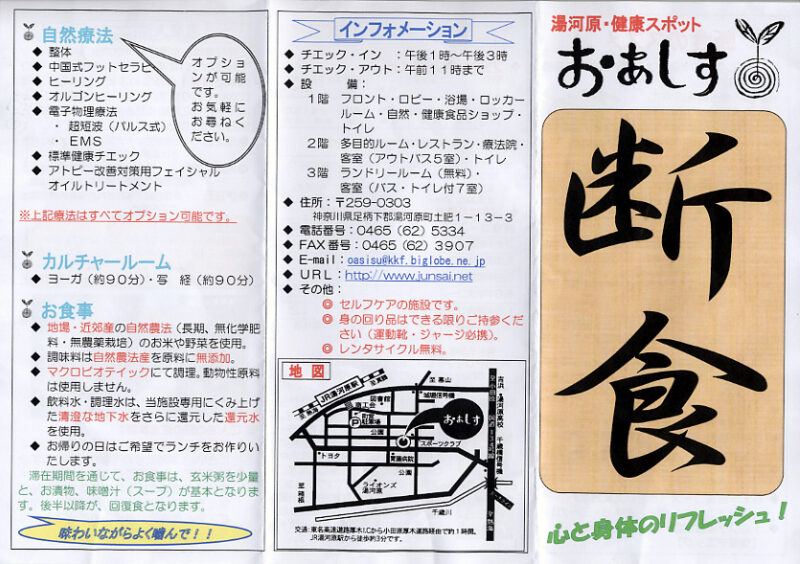 自然療法
◆ 整体
◆ 中国式フットセラピー
◆ ヒーリング
◆ オルゴンヒーリング
◆ 電子物理療法
・ 超短波（パルス式）
・ EMS
◆ 標準健康チェック
◆ アトピー改善対策用フェイシャル
オイルトリートメント
オプショ
ンが可能
です。
お気軽に
お尋ねく
ださい。
※上記療法はすべてオプション可能です。
カルチャールーム
◆ ヨーガ（約９０分）・写　経（約９０分）
お食事
◆ 地場・近郊産の自然農法（長期、無化学肥
料・無農薬栽培）のお米や野菜を使用。
◆ 調味料は自然農法産を原料に無添加。
◆ マクロビオティックにて調理。動物性原料
は使用しません。
◆ 飲料水・調理水は、当施設専用にくみ上げ
た清澄な地下水をさらに還元した還元水
を使用。
◆ お帰りの日はご希望でランチをお作りい
たします。
滞在期間を通じて、お食事は、玄米粥を少量
と、お漬物、味噌汁（スープ）が基本となりま
す。後半以降が、回復食となります。
味わいながらよく噛んで！！
インフォメーション
◆ チェック・イン　：午後１時～午後３時
◆ チェック・アウト：午前１１時まで
◆ 設　　備：
１階　フロント・ロビー・浴場・ロッカー
ルーム・自然・健康食品ショップ・
トイレ
２階　多目的ルーム・レストラン・療法院・
客室（アウトバス５室）・トイレ
３階　ランドリールーム（無料）・
客室（バス・トイレ付７室）
◆ 住所：〒259-0303
神奈川県足柄下郡湯河原町土肥１－１３－３
◆ 電話番号：0465（62）5334
◆ FAX番号：0465（62）3907
◆ E-mail：oasisu@kkf.biglobe.ne.jp
◆ URL：http://www.junsai.net
◆ その他：
◎ セルフケアの施設です。
◎ 身の回り品はできる限りご持参くだ
さい（運動靴・ジャージ必携）。
◎ レンタサイクル無料。
地図
JR湯河原駅
至熱海
至真鶴
至幕山
図書館
商工会
町営駐車場
P
城堀信号機
公園
おあしす
スポーツクラブ
トヨタ
胃腸病院
公園
ライオンズ
湯河原
千歳川
至箱根
吉浜
湯河原高校
千歳橋信号機
交通：東名高速道路厚木I.Cから小田原厚木道路経由で約１時間。
JR湯河原駅から徒歩約３分です。
湯河原・健康スポット
おあしす
断食
心と身体のリフレッシュ！